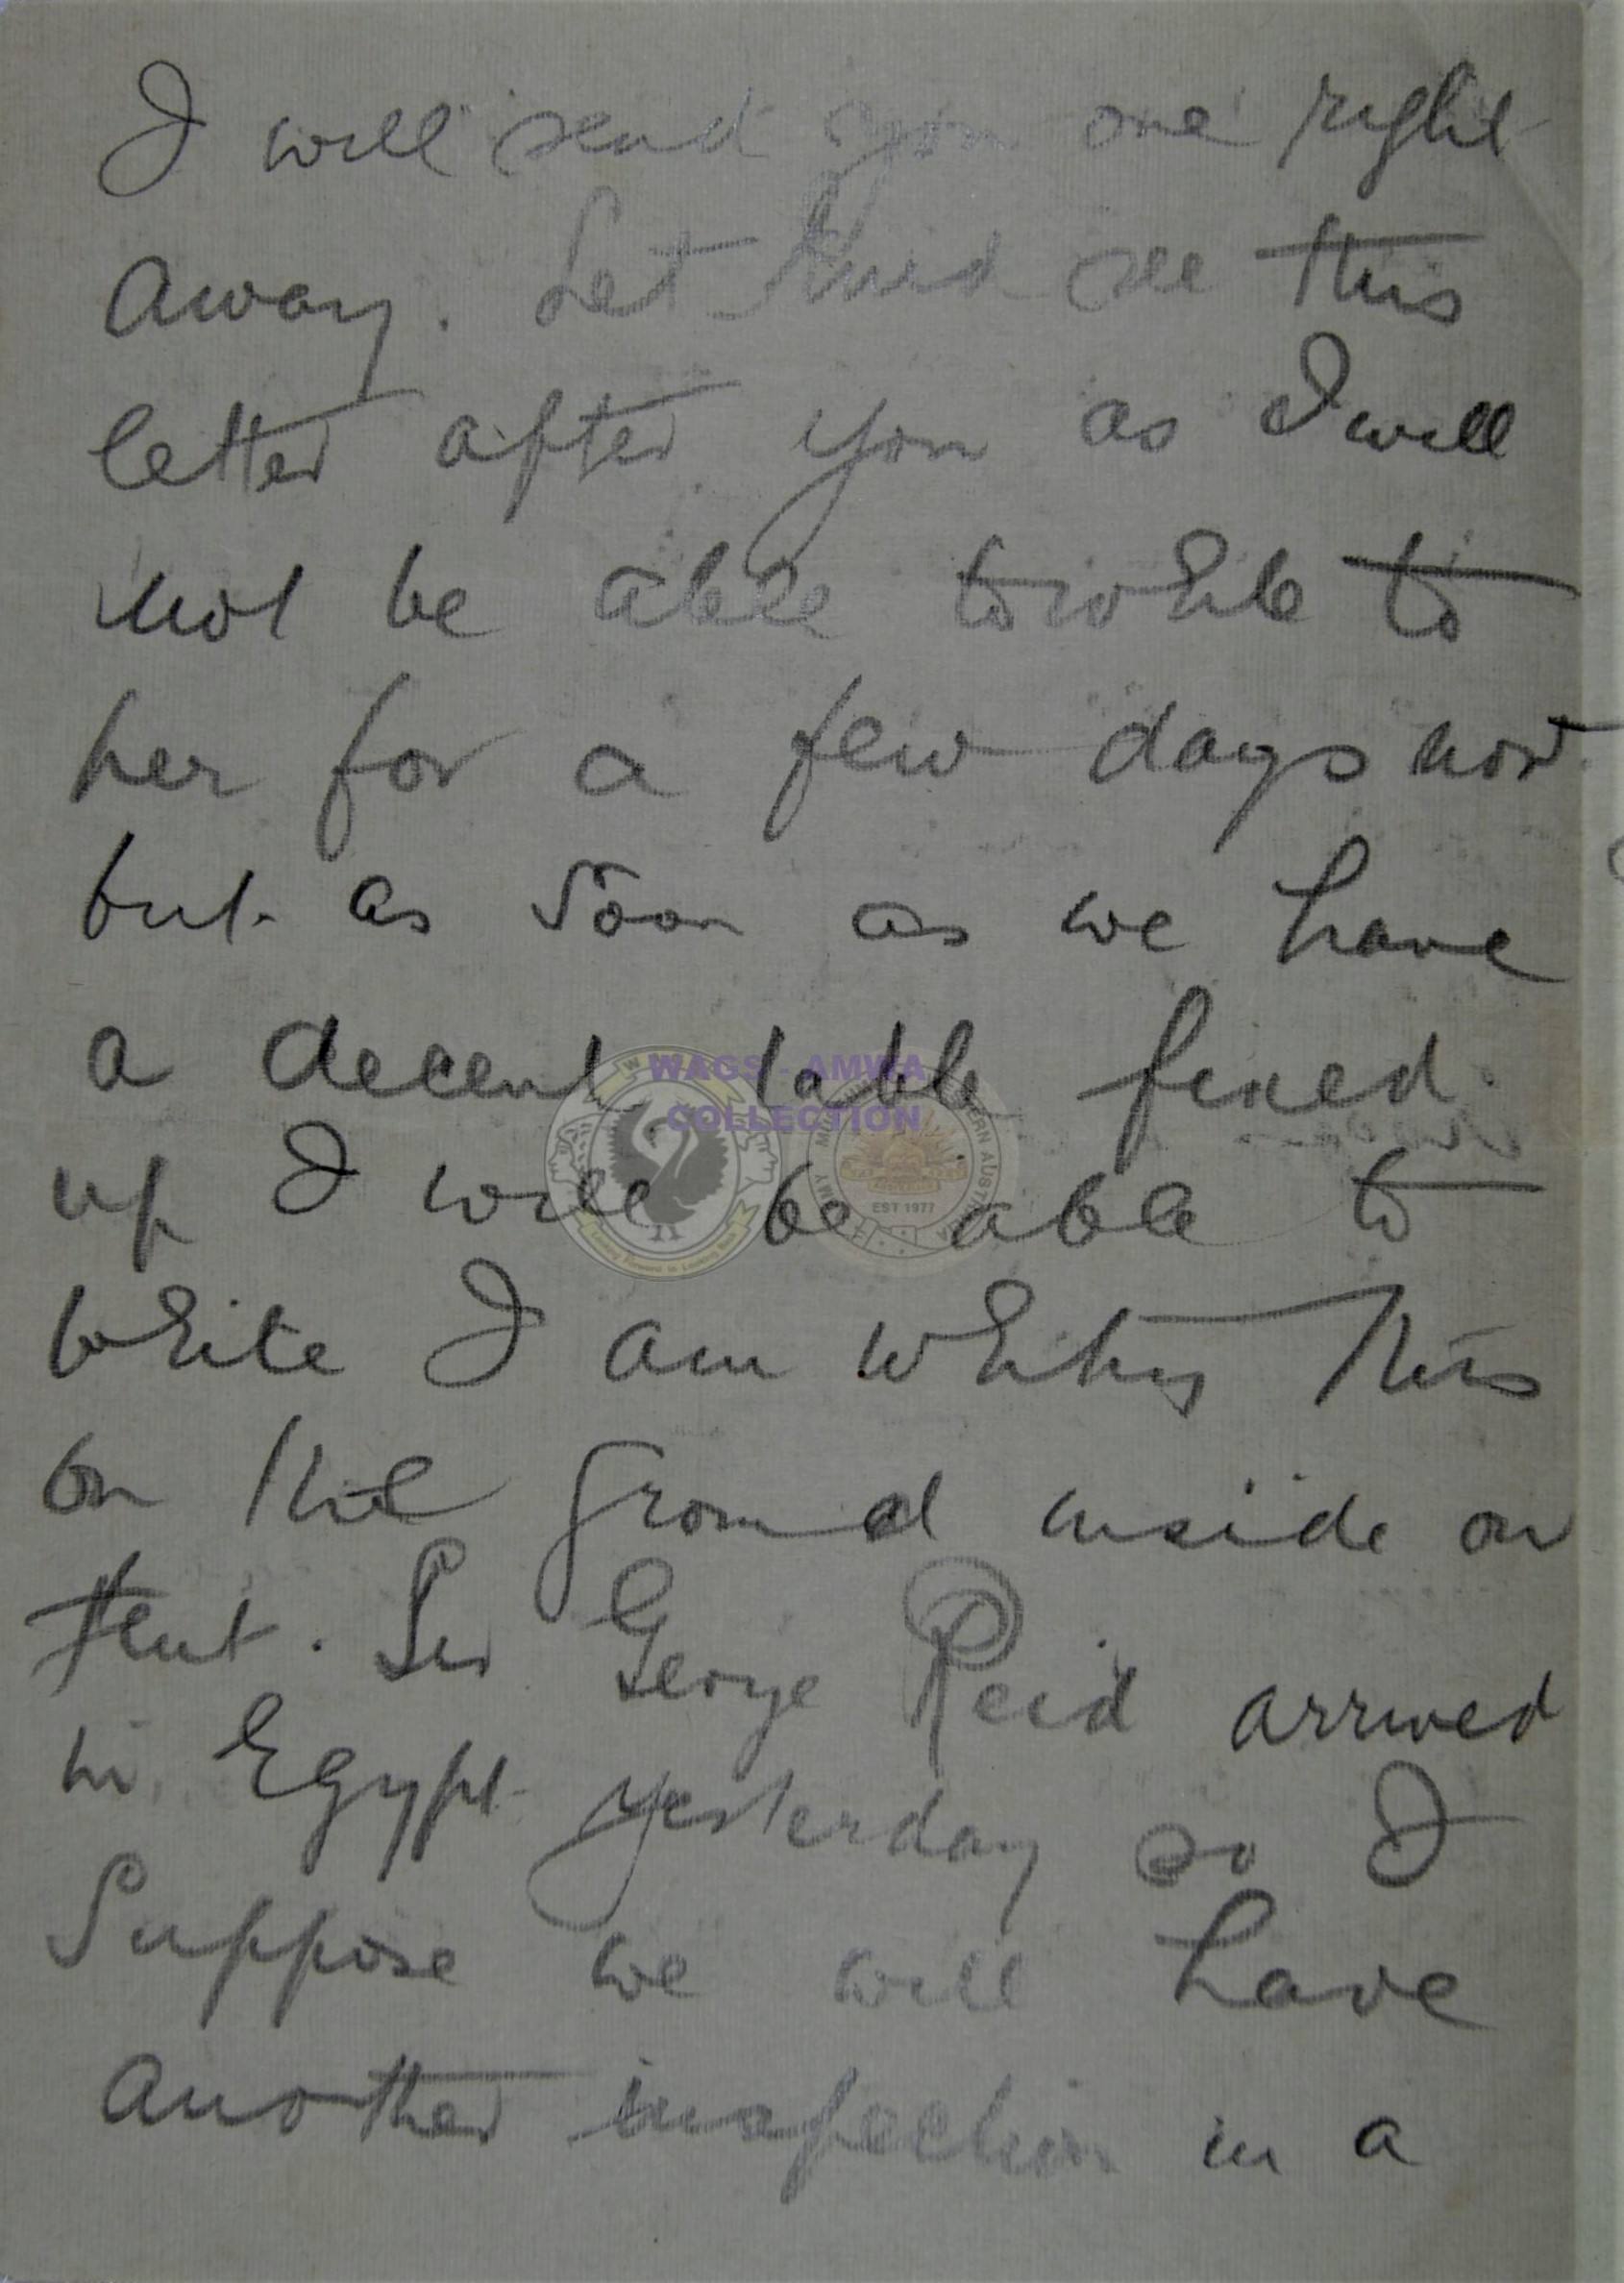 I will send you one right
away. Let see this
letter after you as I will
not be able to write to
her for a few days now
but as soon as we have
a decent table fixed
up I will be able to
write I am writing this
on the ground inside our
tent. Sir George Reid arrived
in Egypt yesterday so I
Suppose we will have
another inspection in a
WAGS - AMWA
COLLECTION
EST 1977